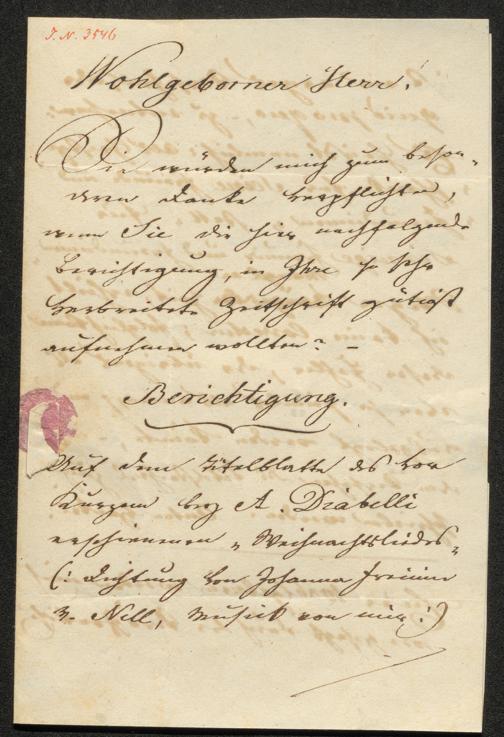 I. N. 3546
Wohlgeborner Herr!
Sie würden mich zum beson-
dern Danke verpflichten,
wenn Sie die hier nachfolgende
Berichtigung, in Ihre so sehr
verbreitete Zeitschrift gütigst
aufnehmen wollten? –
Berichtigung.
Auf dem Titelblatte des vor
Kurzem bey A. Diabelli
erschienenen „Weihnachtsliedes"
(: Dichtung von Johanna Freiinn
v. Nell, Musick von mir :)